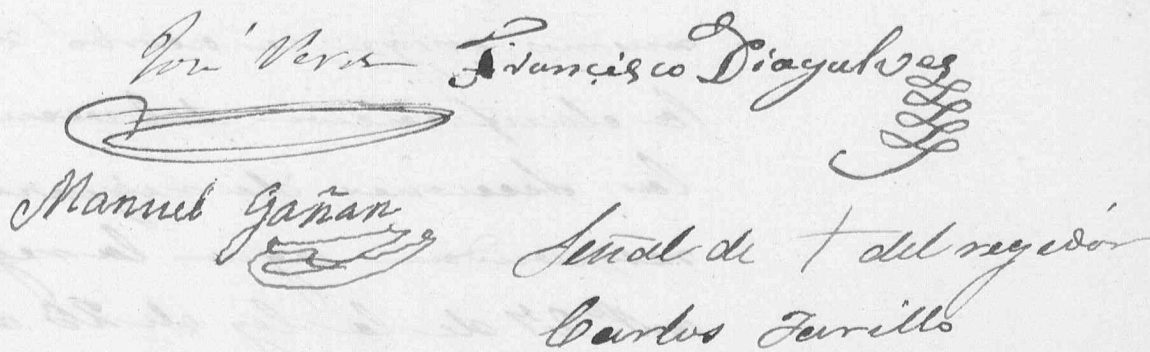 José Vera Francisco Diagalves
Manuel Gañan
Señal de + del regidor
Carlos Jarillo